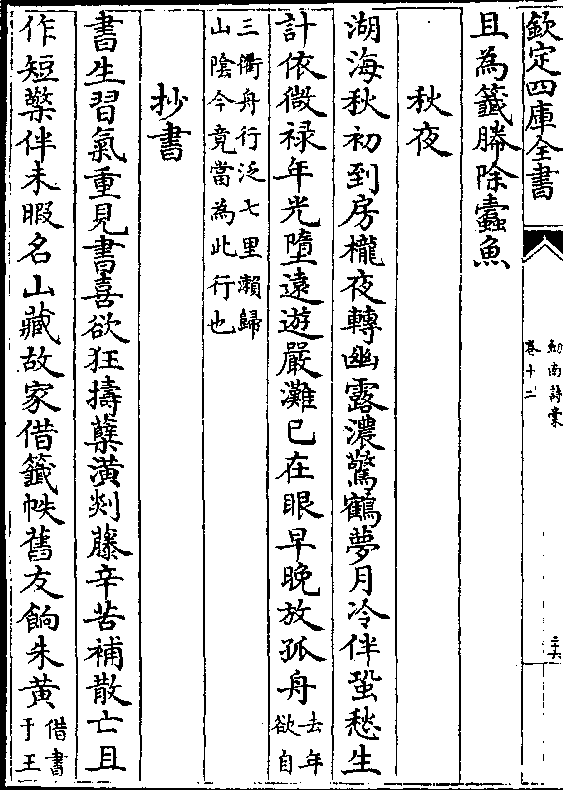 欽定四庫全書
劍南詩槀
卷十二
且為籤牓除蠹魚
秋夜
湖海秋初到房櫳夜轉幽露濃驚鶴夢月冷伴蛩愁生
計依微禄年光墮遠遊嚴灘已在眼早晚放孤舟
去年
欲自
三衢舟行泛七里瀨歸
山陰今竟當為此行也
抄書
書生習氣重見書喜欲狂擣蘗潢剡藤辛苦補散亡且
作短檠伴未暇名山藏故家借籤帙舊友餉朱黄
借書
于王